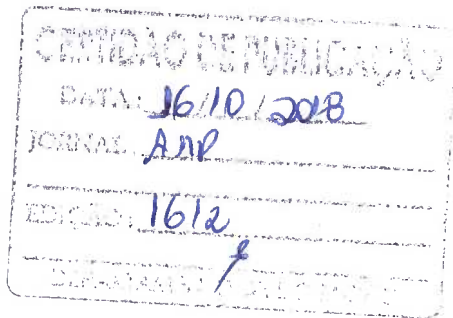 CERTIDÃO DE PUBLICAÇÃO
DATA: 16/10/2018
JORNAL: AMP
EDIÇÃO: 1612